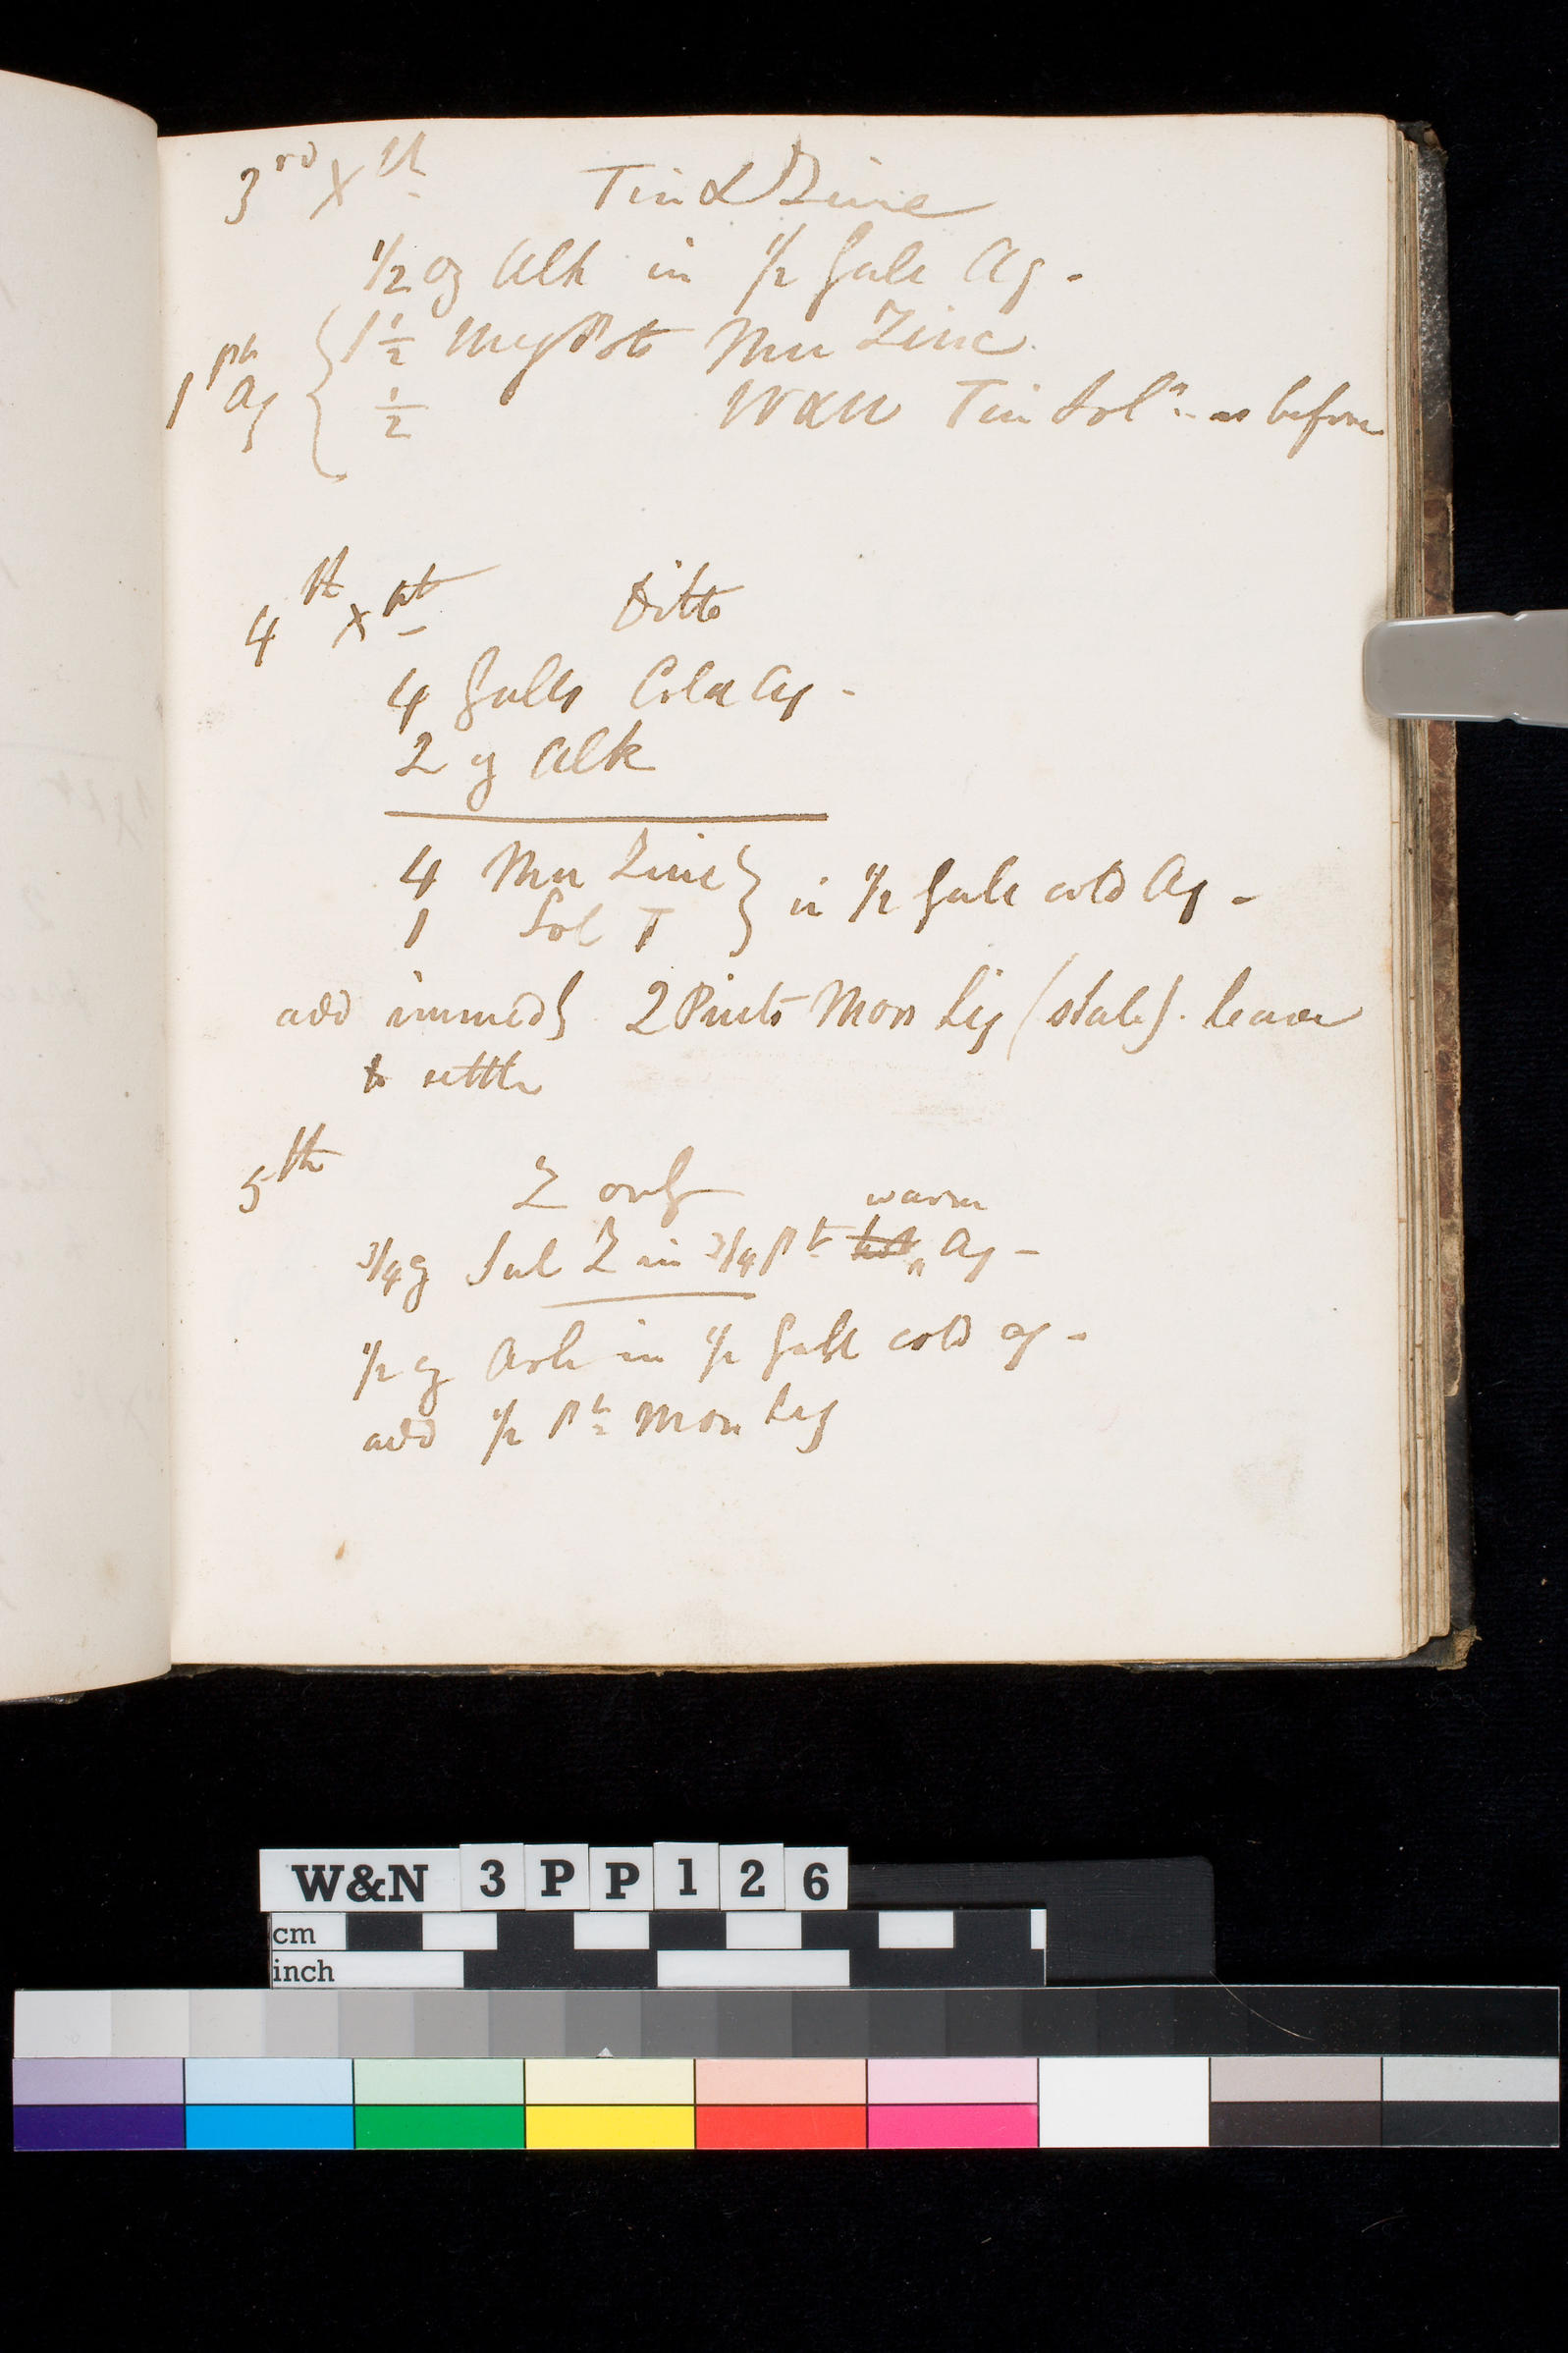 3rd Xt Tin & Zinc
1/2 oz Alk in 1/2 Galn Aq -
1 1/2 Mu Zinc
1 pt Aq { 1/2 W&N Tin Soln as before
4th xpt Ditto
4 Galls Cold Aq -
2 oz Alk
4 Mu Zinc } in 1/2 Galn cold Aq -
1 Sol T
add immedy 2 Pints Mor Liq (stale). leave
to settle
5th
Z only
warm
3/4 oz Sul Z in 3/4 Pt hot Aq -
1/2 oz in 1/2 Gall cold aq -
add 1/2 Pt Mor Liq
W&N 3PP126
cm
inch